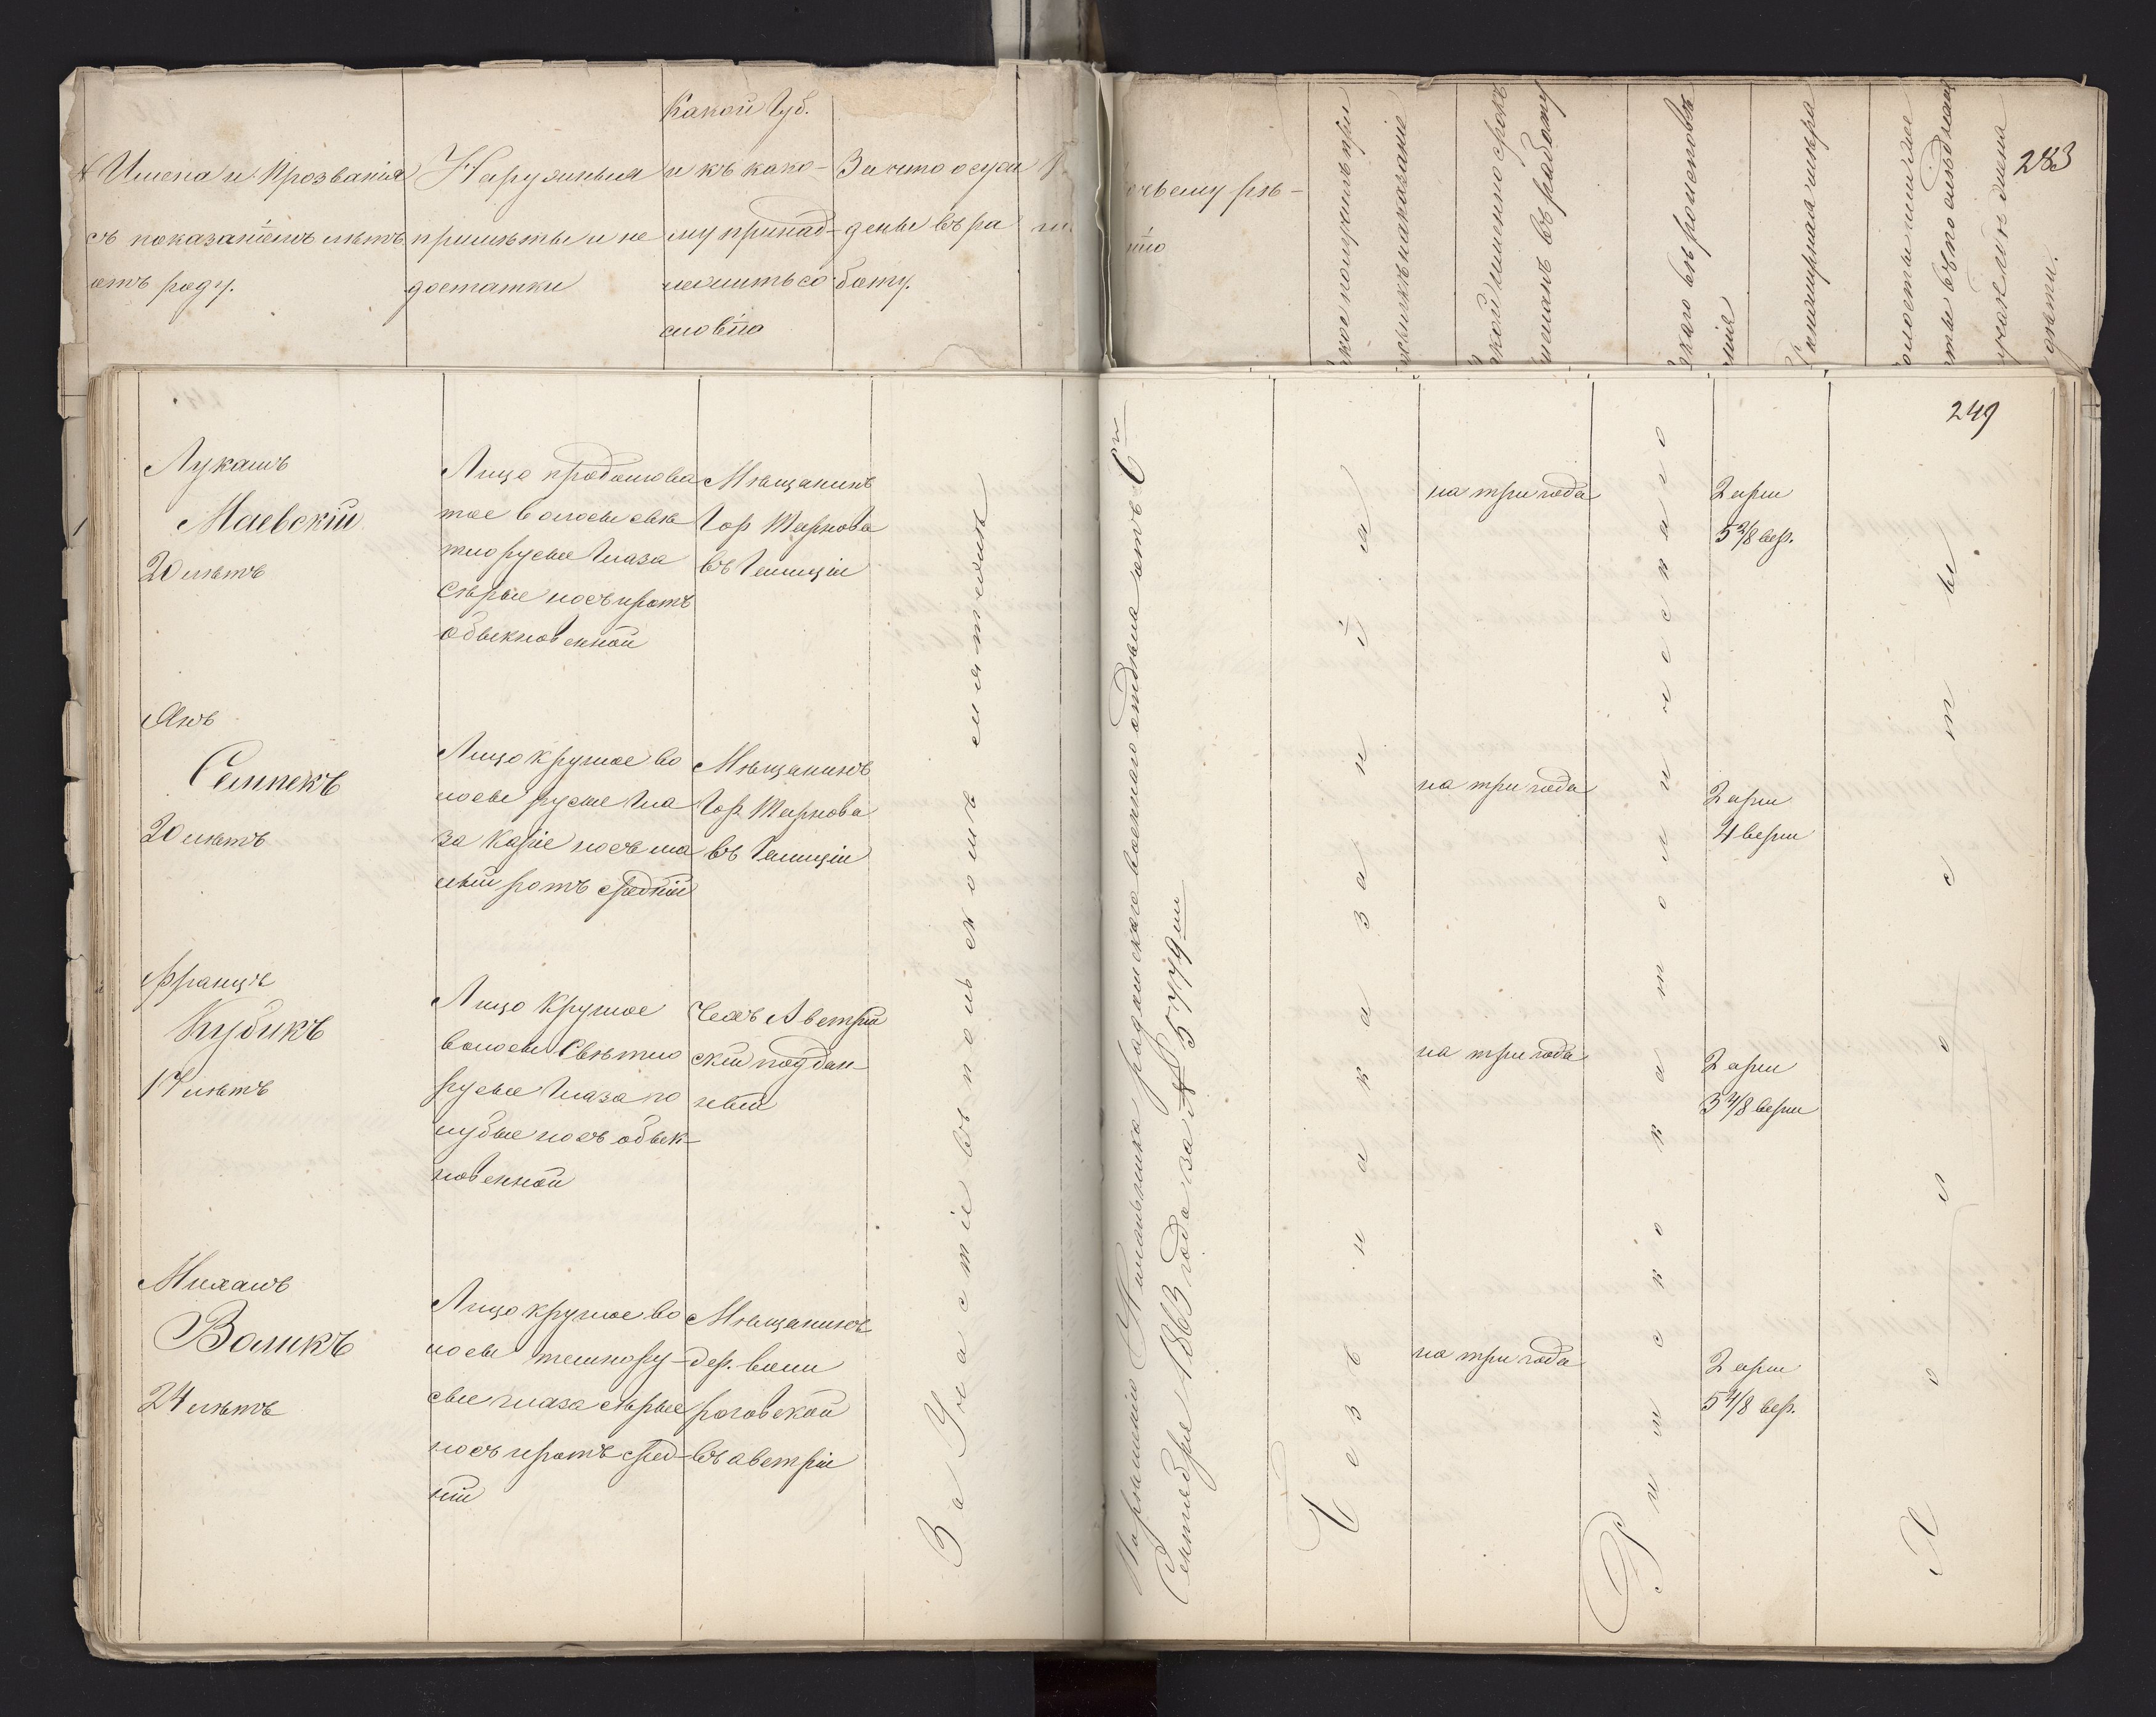 Какой Губ.
Имена и Прозванія
съ показаніемъ лѣтъ
отъ роду.
Наружныя
примѣты и не
достатки
и къ како-
му принад-
лежитъ со
словію
За что осуж
дены въ ра
боту.
283
249
Лукашъ
Маевскій
20 лѣтъ
Лицо продолгова
тое волосы свѣ
тлорусые глаза
сѣрые носъ и ротъ
обыкновенной
Мѣщанинъ
Гор Тарнова
въ Галиціи
на три года
2 арш
5 2/8 вер.
Янъ
Семпекъ
20 лѣтъ
Лицо круглое во
лосы русые гла
за Каріе носъ ма
лый ротъ средній
Мѣщанинъ
Гор Тарнова
въ Галиціи
на три года
2 арш
4 верш
Францъ
Кубикъ
17 лѣтъ
Лицо круглое
волосы Свѣтло
русые глаза го
лубые носъ обык-
новенной
Чехъ Австрій
скій поддан
ный
на три года
2 арш
3 4/8 верш
Михалъ
Воликъ
24 лѣтъ
Лицо круглое во
лосы темнору-
сые глаза сѣрые
носъ и ротъ сред-
ній
Мѣщанинъ
дер.
въ австріи
на три года
2 арш
5 4/8 вер.
За Участіе въ польскомъ мятежѣ
По рѣшенію Начальника радомскаго военнаго отдѣла отъ
Сентября 1863 года за № 5779
Безъ наказанія
Римско католическаго
Холостые